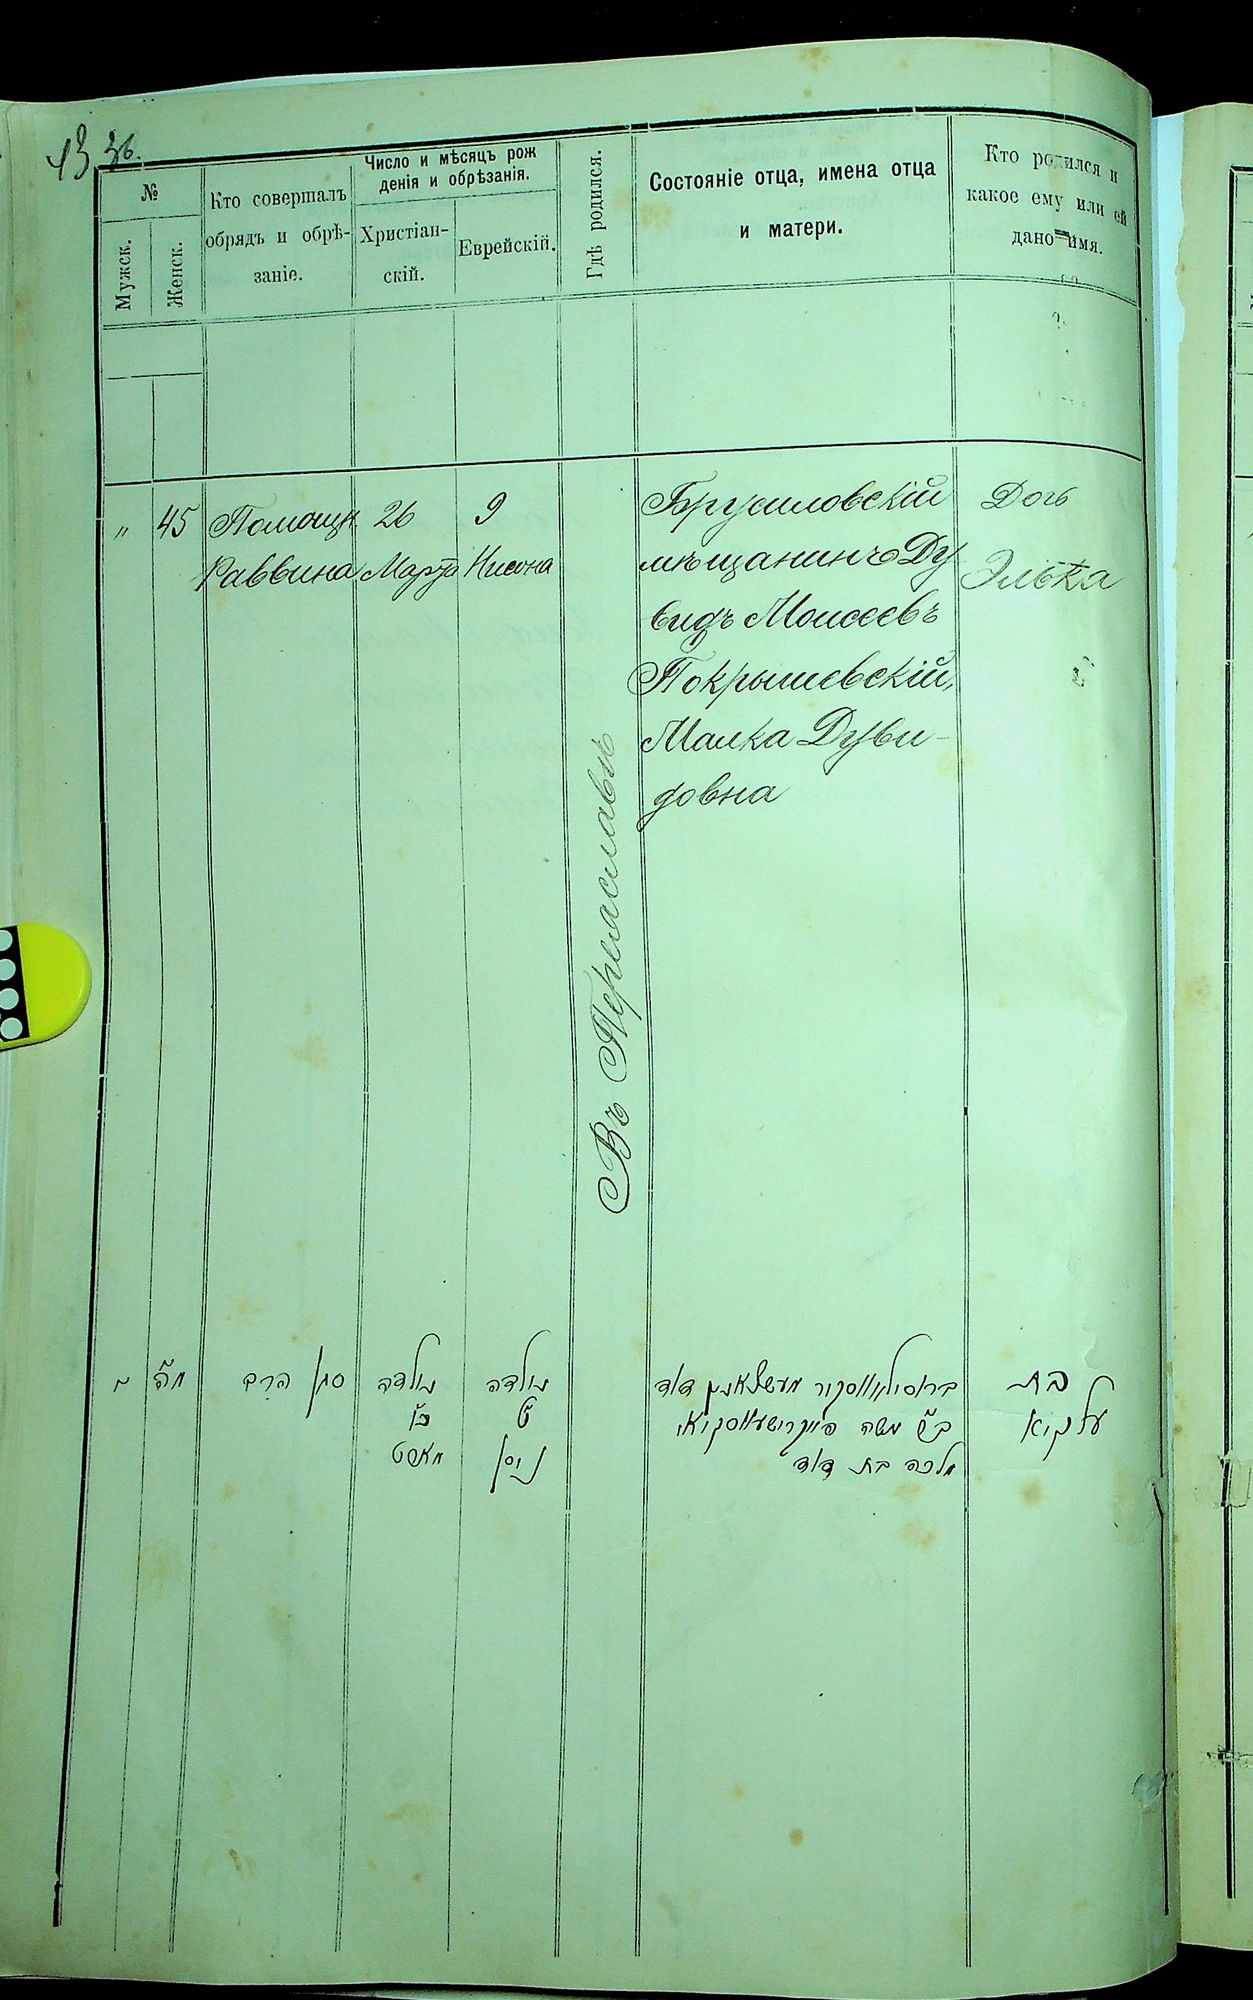 43 36.
№
Мужск.
Женск.
Кто совершалъ
обрядъ и обрѣ-
заніе.
Число и мѣсяцъ рож
денія и обрѣзанія.
Христіан-
скій.
Еврейскій.
Гдѣ родился.
Состояніе отца, имена отца
и матери.
Кто родился и
какое ему или ей
дано имя.
"
45
Помощн
Раввина
26
Марта
9
Нисона
Въ Переяславѣ
Брусиловскій
мѣщанинъ Ду
видъ Моисеевъ
Покрышевскій,
Малка Дуви-
довна
Дочь
Элька
מה
סגן הרב
נולדה
כו
מארט
נולדה
ט
ניסן
דוד
משה
מלכה בת דוד
בת
עלקיא